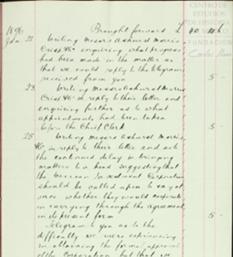 1898 Brought forward £
Jan. 21 Writing Messrs Ashurst Morris
Crisp &Co enquiring what progress
had been made in the matter so
that we could reply to the telegram
received from you 5 -
23 Writing Messrs Ashurst Morris
Crisp &Co in reply to their letter and
enquiring further as to what
appointments had been taken
before the Chief Clerk 5 -
25 Writing Messrs Ashurst Morris
&Co in reply to their letter and as to
the continued delay in bringing
matters to a head suggesting that
the Corporation
should be called upon to say at
once whether they would cooperate
in carrying through the agreement
in its present form 5 -
Telegram to you as to the
difficulty we were experiencing
in obtaining the formal approval
of the Corporation but that we